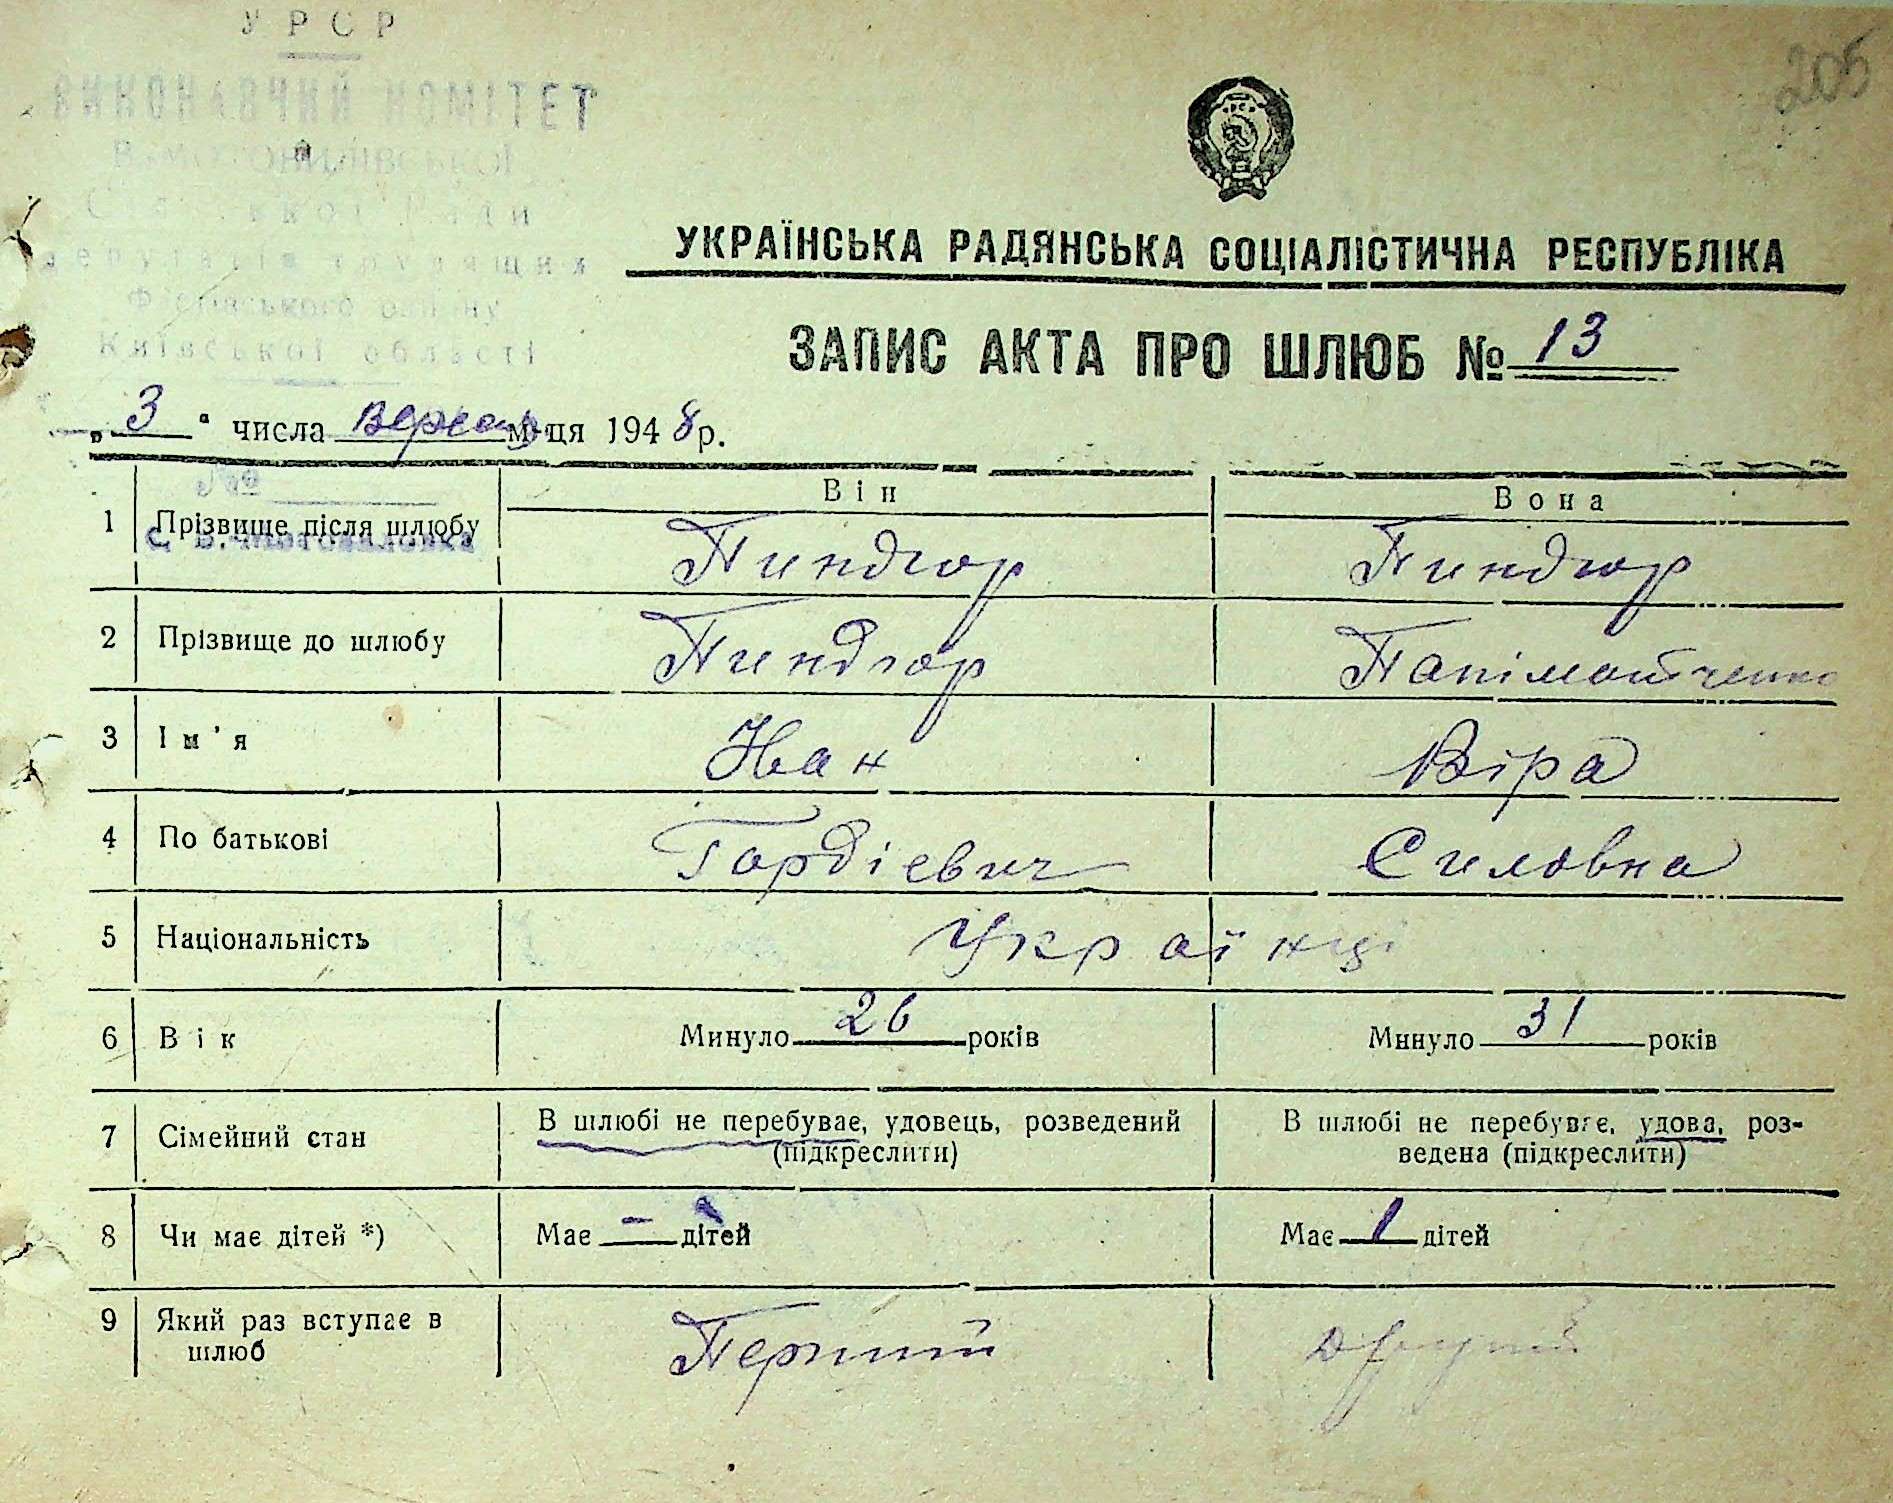 УРСР
ВИКОНАВЧИЙ КОМІТЕТ
В-МОТОВИЛІВСЬКОЇ
Сільської Ради
депутатів трудящих
Фастівського району
Київської області
205
УКРАЇНСЬКА РАДЯНСЬКА СОЦІАЛІСТИЧНА РЕСПУБЛІКА
ЗАПИС АКТА ПРО ШЛЮБ № 13
„3“ числа верес м-ця 1948 р.
№
Він Вона
1 Прізвище після шлюбу Пиндюр Пиндюр
с. В.-Мотовиловка
2 Прізвище до шлюбу Пиндюр
3 Ім'я Иван Віра
4 По батькові Гордієвич Силовна
5 Національність Українці
6 Вік Минуло 26 років Минуло 31 років
7 Сімейний стан В шлюбі не перебуває, удовець, розведений (підкреслити) В шлюбі не перебуває, удова, роз-
ведена (підкреслити)
8 Чи має дітей *) Має - дітей Має 1 дітей
9 Який раз вступає в шлюб Перший Другий